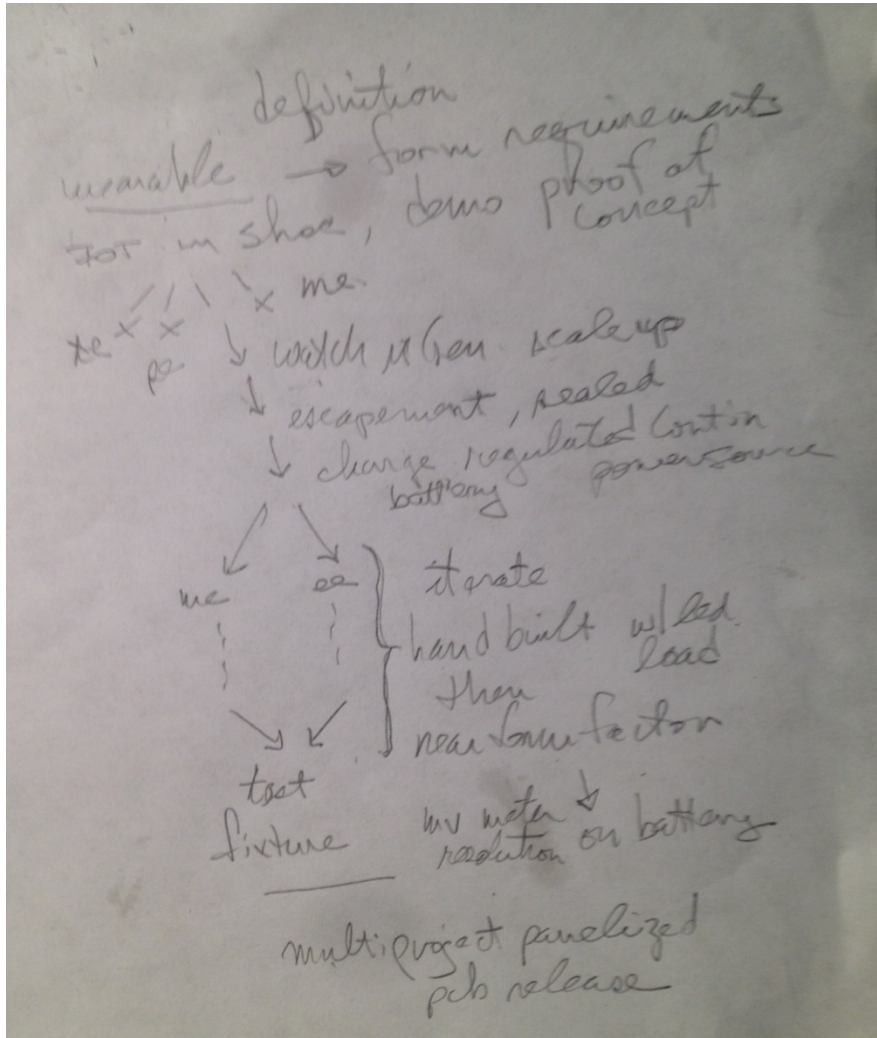 definition
wearable → form requirements
IOT in shoe, demo proof of
concept
x x x me.
te
pe
watch μGen. scale up
escapement, sealed
charge regulated contin
battery powersource
me ee
iterate
hand built w/ led
load
then
near form factor
test
fixture
mv meter
resolution on battery
multiproject panelized
pcb release